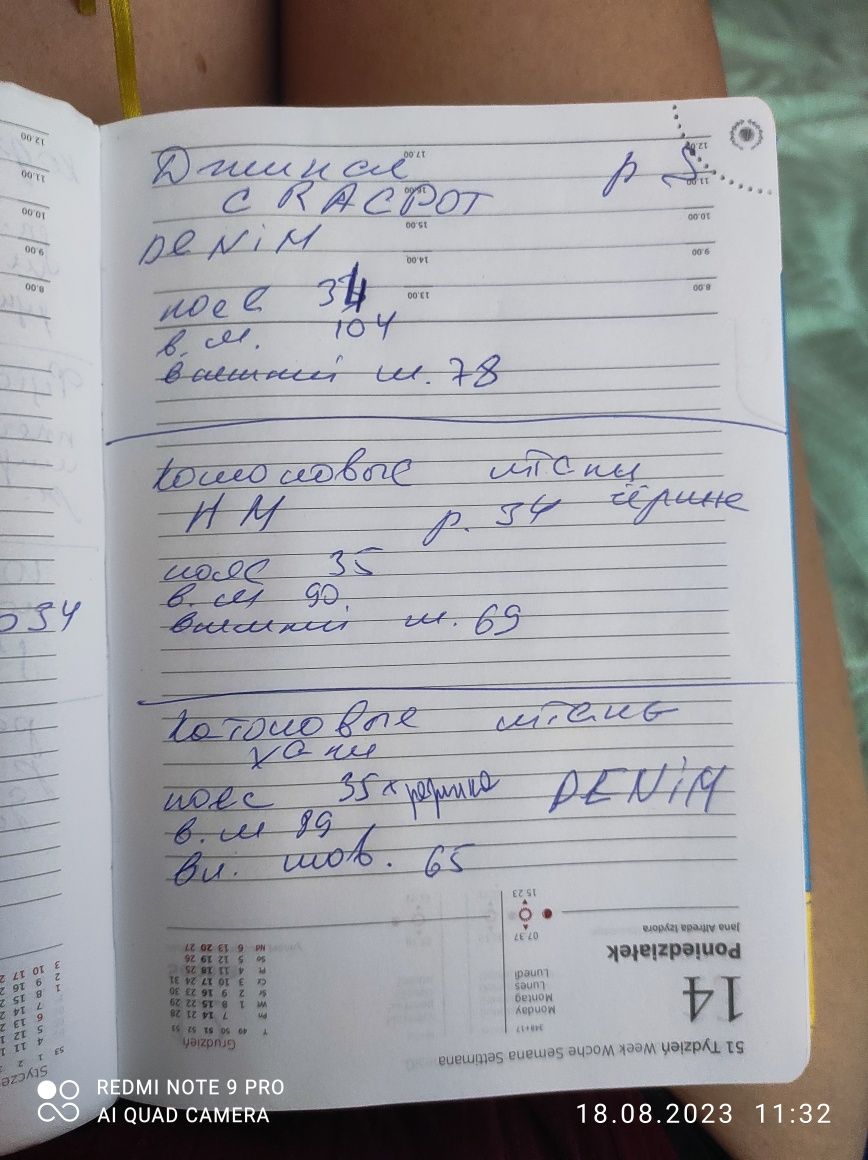 Джинсы р S
CRACPOT
DENiM
пояс 34
в.м. 104
внешний ш. 78
котоновые штаны
HM р. 34 чёрные
пояс 35
в.м 90.
внешний ш. 69
Катоновые штаны
хаки
пояс 35 х резинка DENiM
в.м 89
вн. шов. 65
034
17.00
16.00
15.00
14.00
13.00
12.00
11.00
10.00
9.00
8.00
12.00
11.00
10.00
9.00
8.00
15:23
07:37
Jana Alfreda Izydora
Poniedziałek
14
Monday
Montag
Lunes
Lunedì
348+17
51 Tydzień Week Woche Semana Settimana
Grudzień
T 49 50 51 52 53
Pn 7 14 21 28
Wt 1 8 15 22 29
Śr 2 9 16 23 30
Cz 3 10 17 24 31
Pt 4 11 18 25
So 5 12 19 26
Nd 6 13 20 27
REDMI NOTE 9 PRO
AI QUAD CAMERA
18.08.2023 11:32